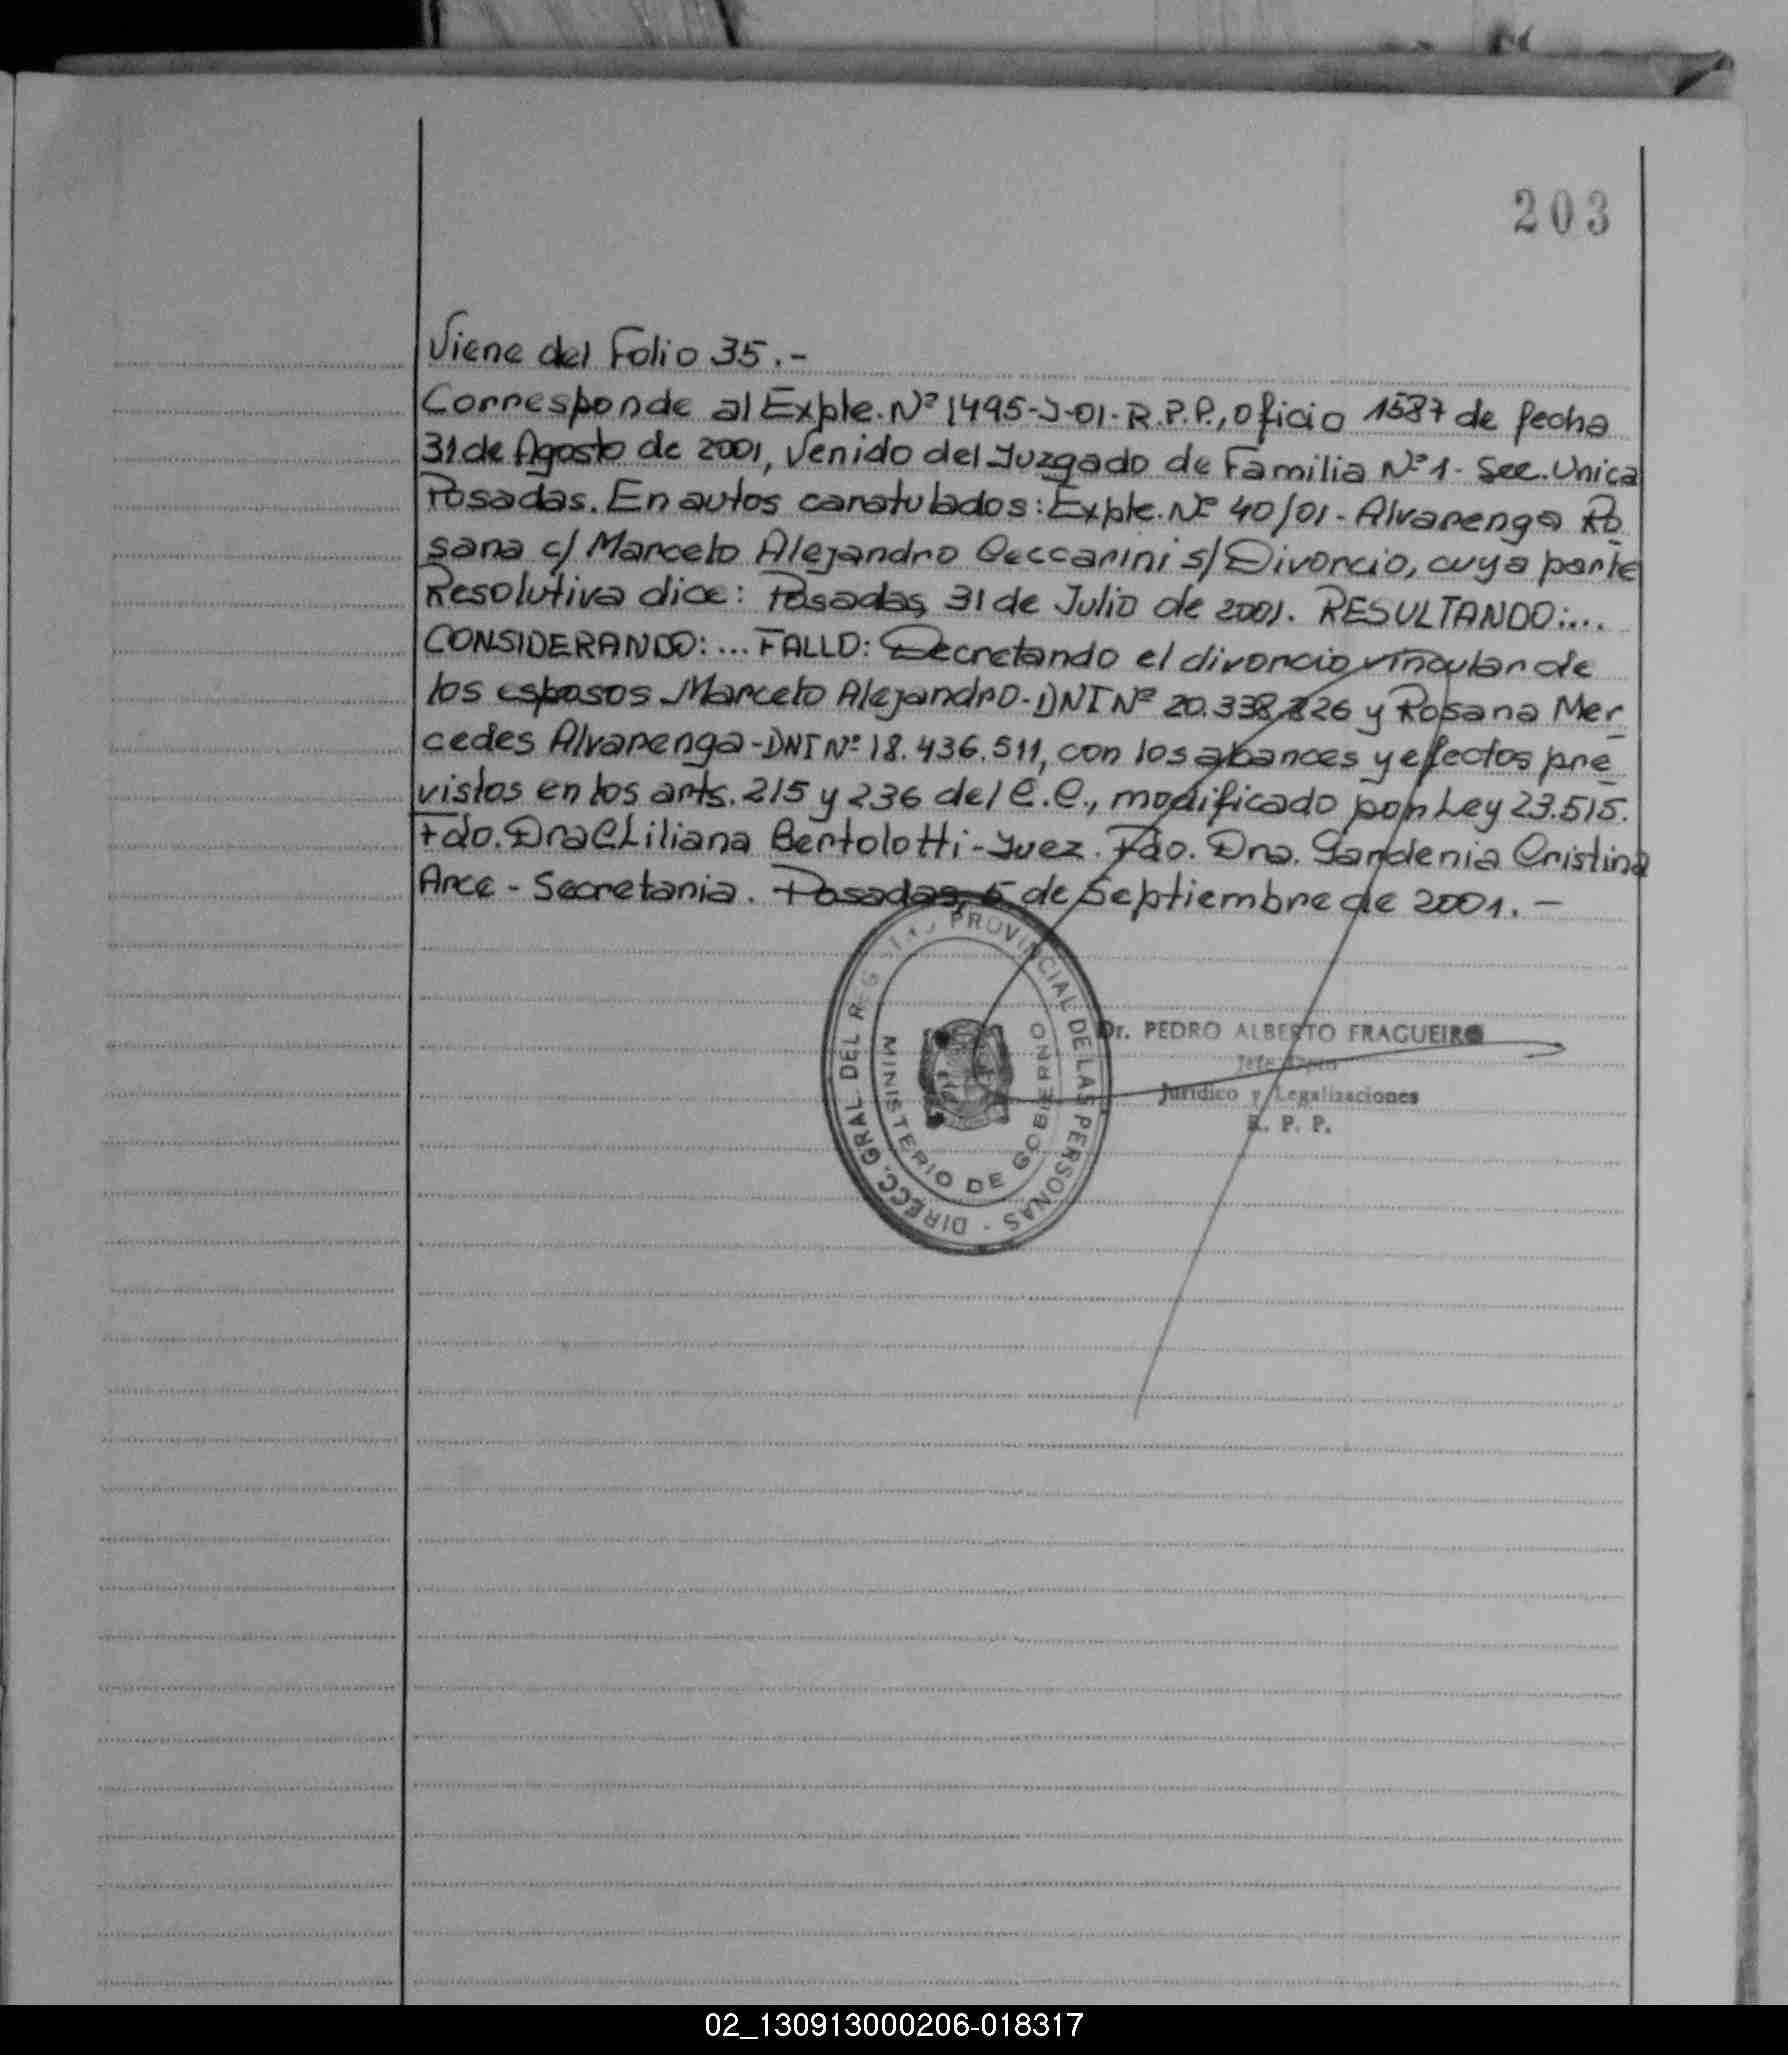 203
Viene del Folio 35.-
Corresponde al Expte. Nº 1495-J-01-R.P.P., Oficio 1587 de fecha
31 de Agosto de 2001, Venido del Juzgado de Familia Nº 1- Sec. Unica
Posadas. En autos caratulados: Expte. Nº 40/01- Alvarenga Ro
sana c/ Marcelo Alejandro Ceccarini s/ Divorcio, cuya parte
Resolutiva dice: Posadas, 31 de Julio de 2001. RESULTANDO:....
CONSIDERANDO: ... FALLO: Decretando el divorcio vincular de
los esposos Marcelo Alejandro-DNI Nº 20.338.226 y Rosana Mer
cedes Alvarenga-DNI Nº 18.436.511, con los abances y efectos pre
vistos en los arts. 215 y 236 del C.C., modificado por Ley 23.515.
Fdo. Dra Liliana Bertolotti-Juez. Fdo. Dra. Gardenia Cristina
Arce - Secretaria. Posadas, 5 de Septiembre de 2001.-
DIRECC. GRAL. DEL REGISTRO PROVINCIAL DE LAS PERSONAS -
MINISTERIO DE GOBIERNO
Dr. PEDRO ALBERTO FRAGUEIRO
Jefe Dpto
Jurídico y Legalizaciones
R. P. P.
02_130913000206-018317